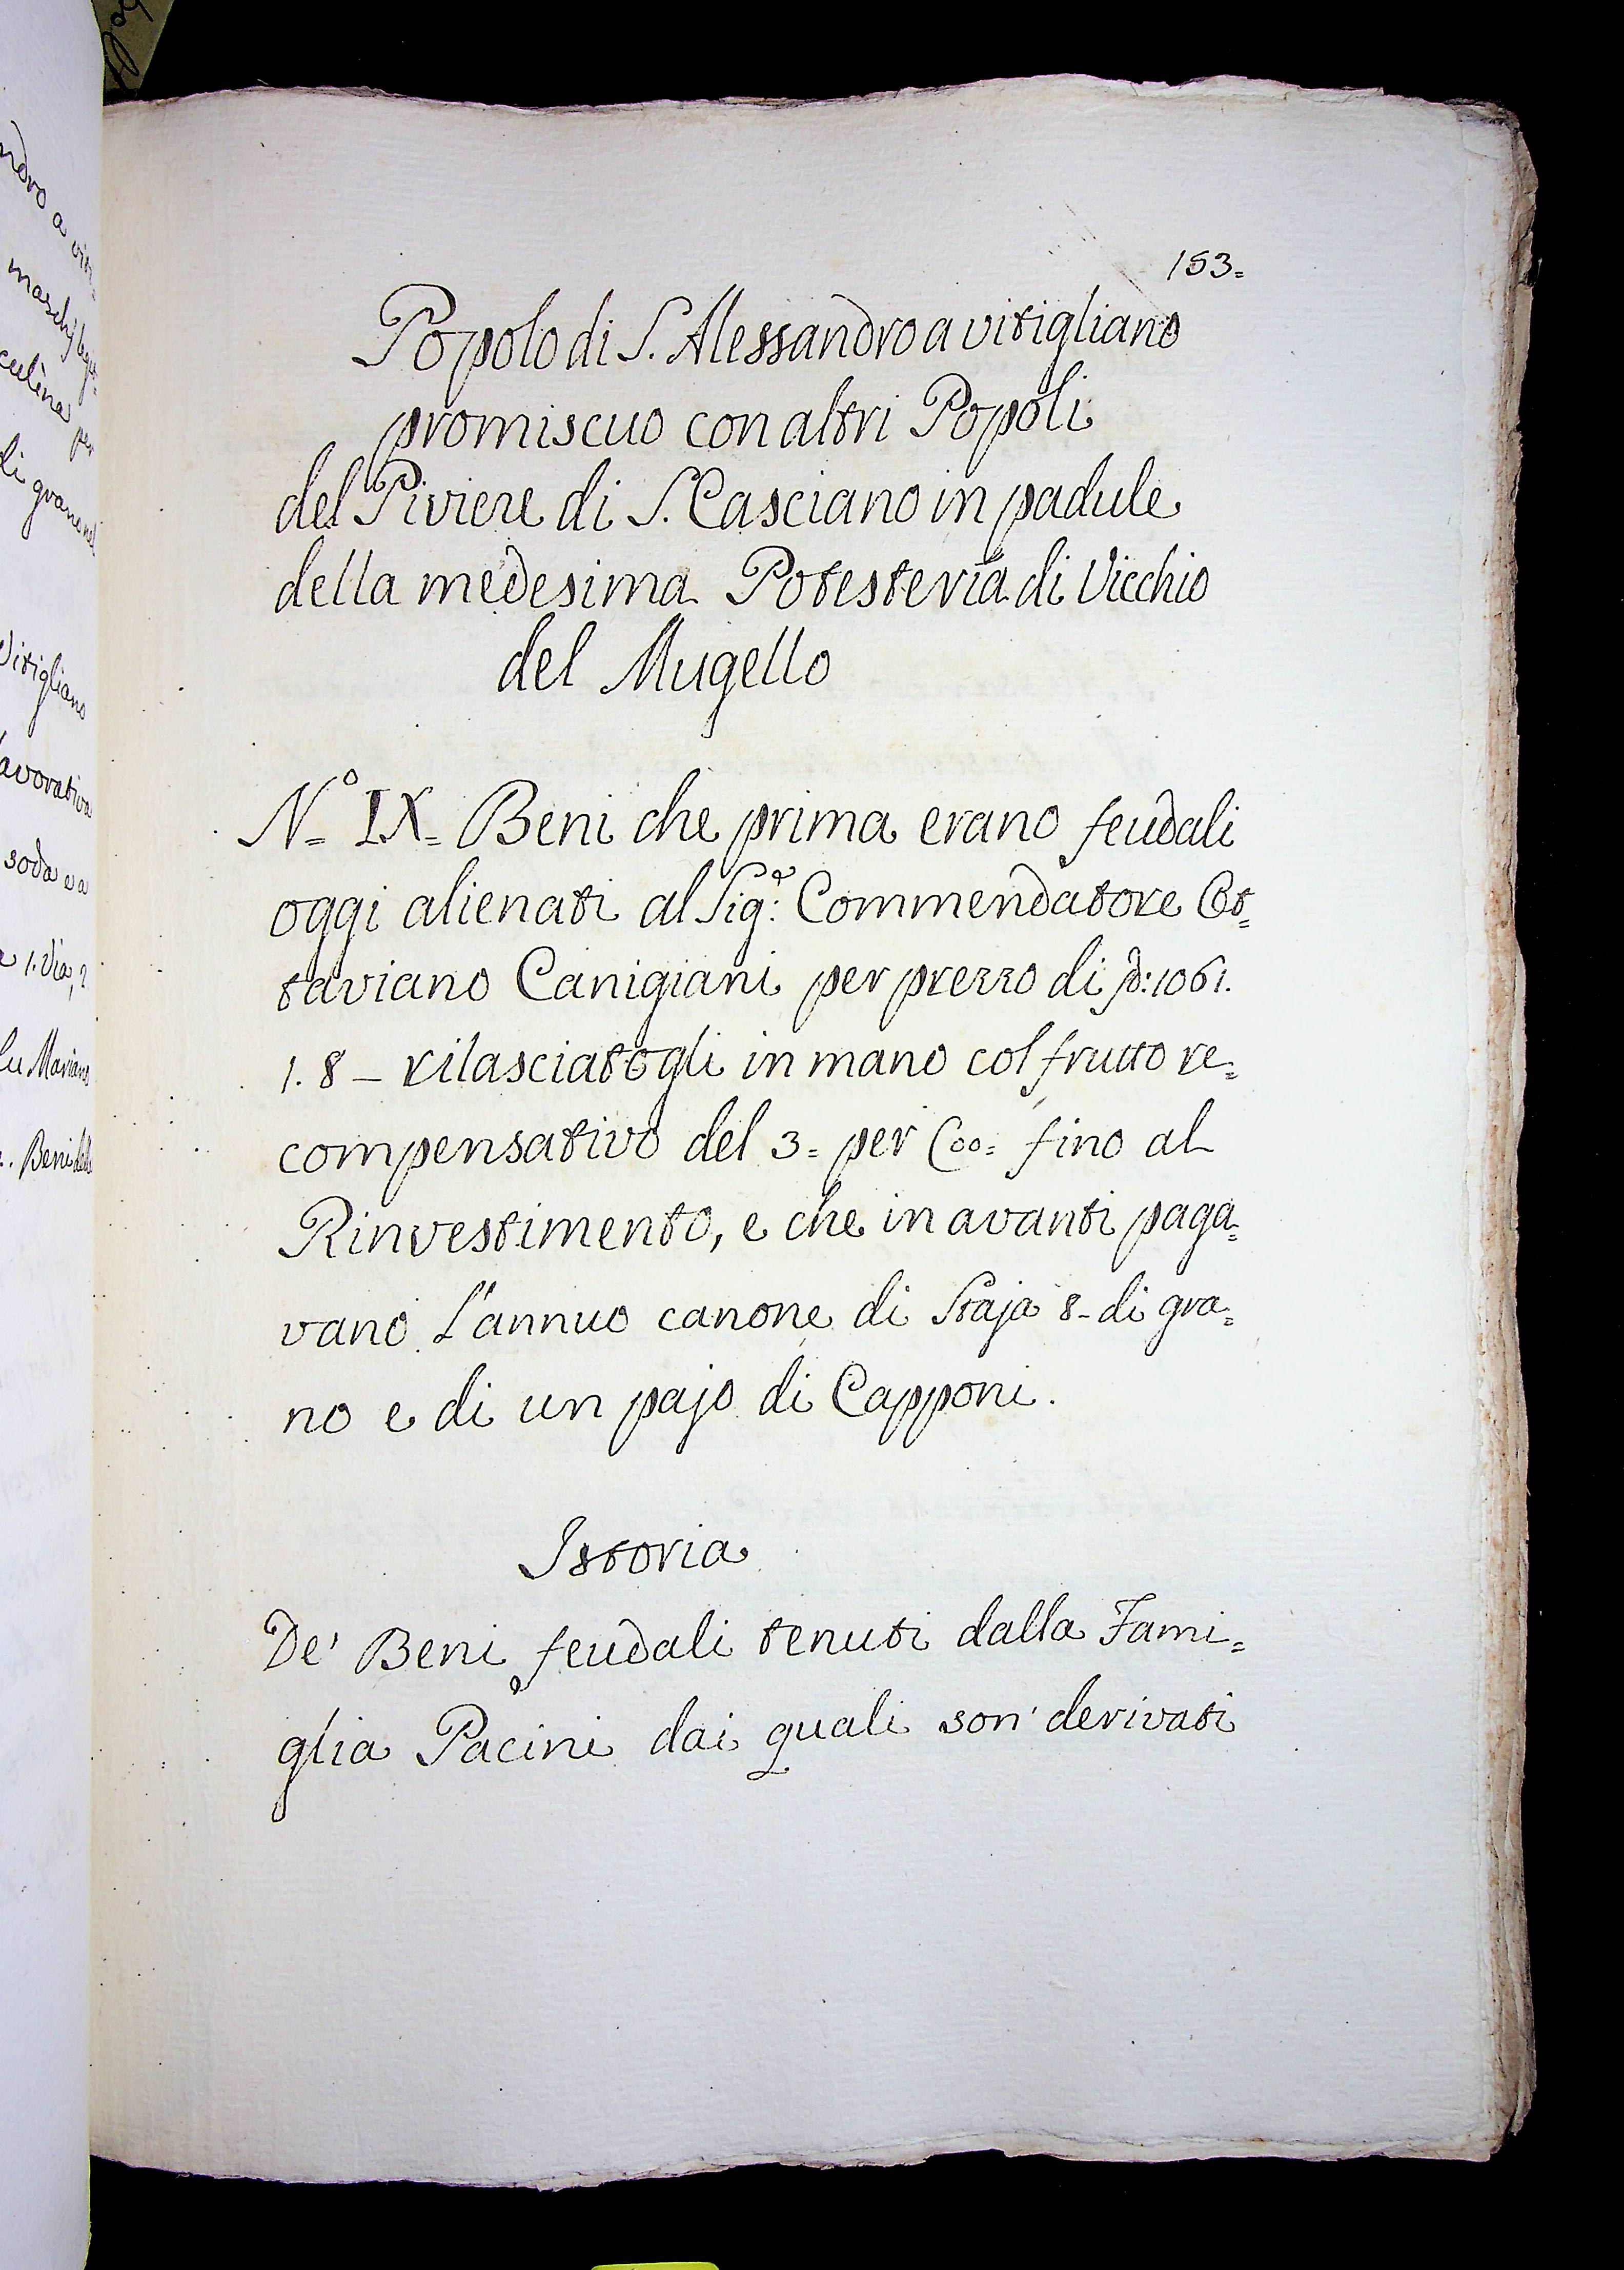 153=
Popolo di S. Alessandro a vitigliano
promiscuo con altri Popoli
del Piviere di S. Casciano in padule
della medesima Potesteria di Vicchio
del Mugello
N.º IX= Beni che prima erano feudali
oggi alienati al Sig.e Commendatore Ot=
taviano Canigiani per prezzo di 1061.
1. 8 – rilasciatogli in mano col frutto re=
compensativo del 3= per Coo= fino al
Rinvestimento, e che in avanti paga=
vano L'annuo canone di Staja 8– di gra=
no e di un pajo di Capponi.
Istoria
De' Beni feudali tenuti dalla Fami=
glia Pacini dai quali son' derivati
maschj
Vitigliano
lavorativa
soda
1. Via, 2
Mariano
Beni